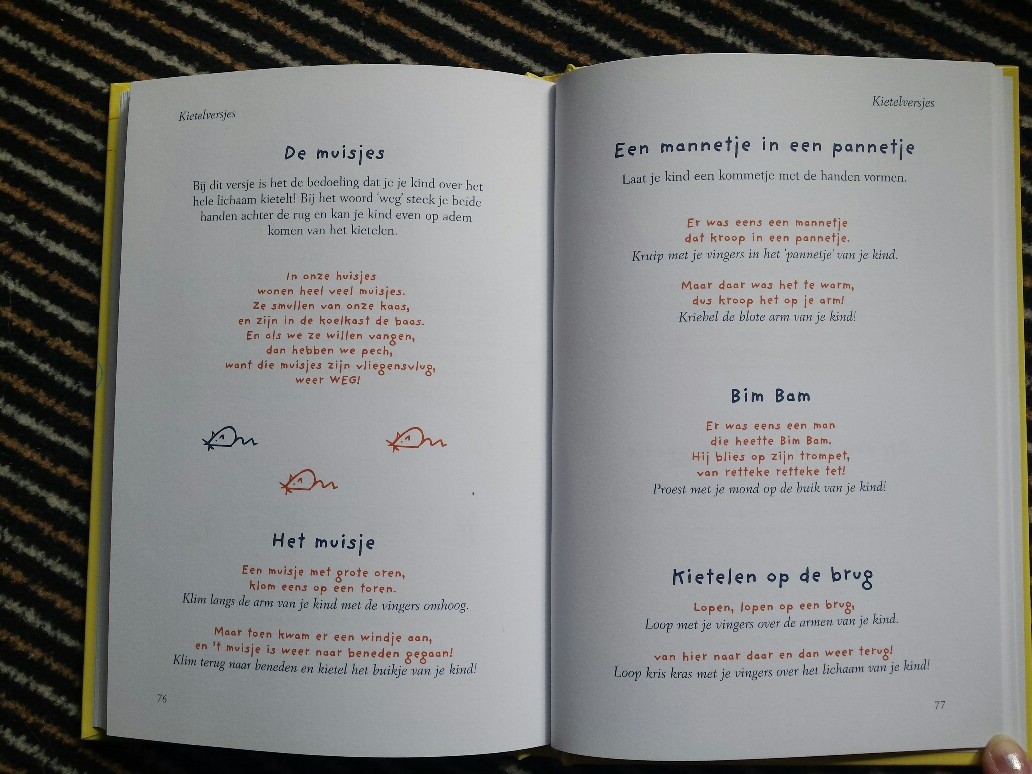 Kietelversjes
De muisjes
Bij dit versje is het de bedoeling dat je je kind over het
hele lichaam kietelt! Bij het woord 'weg' steek je beide
handen achter de rug en kan je kind even op adem
komen van het kietelen.
In onze huisjes
wonen heel veel muisjes.
Ze smullen van onze kaas,
en zijn in de koelkast de baas.
En als we ze willen vangen,
dan hebben we pech,
want die muisjes zijn vliegensvlug,
weer WEG!
Het muisje
Een muisje met grote oren,
klom eens op een toren.
Klim langs de arm van je kind met de vingers omhoog.
Maar toen kwam er een windje aan,
en 't muisje is weer naar beneden gegaan!
Klim terug naar beneden en kietel het buikje van je kind!
76
Kietelversjes
Een mannetje in een pannetje
Laat je kind een kommetje met de handen vormen.
Er was eens een mannetje
dat kroop in een pannetje.
Kruip met je vingers in het 'pannetje' van je kind.
Maar daar was het te warm,
dus kroop het op je arm!
Kriebel de blote arm van je kind!
Bim Bam
Er was eens een man
die heette Bim Bam.
Hij blies op zijn trompet,
van retteke retteke tet!
Proest met je mond op de buik van je kind!
Kietelen op de brug
Lopen, lopen op een brug,
Loop met je vingers over de armen van je kind.
van hier naar daar en dan weer terug!
Loop kris kras met je vingers over het lichaam van je kind!
77